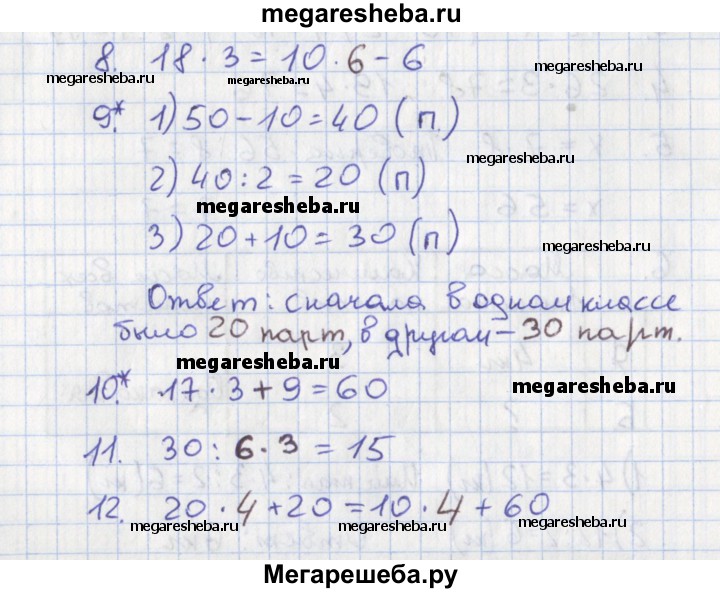 megaresheba.ru
8. 18 · 3 = 10 · 6 - 6
megaresheba.ru megaresheba.ru megaresheba.ru
9.* 1) 50 - 10 = 40 (п.)
megaresheba.ru
2) 40 : 2 = 20 (п)
megaresheba.ru
3) 20 + 10 = 30 (п)
megaresheba.ru
Ответ: сначала в одном классе
было 20 парт, в другом - 30 парт.
megaresheba.ru
10.* 17 · 3 + 9 = 60
megaresheba.ru
11. 30 : 6 · 3 = 15
12. 20 · 4 + 20 = 10 · 4 + 60
megaresheba.ru megaresheba.ru megaresheba.ru
Мегарешеба.ру